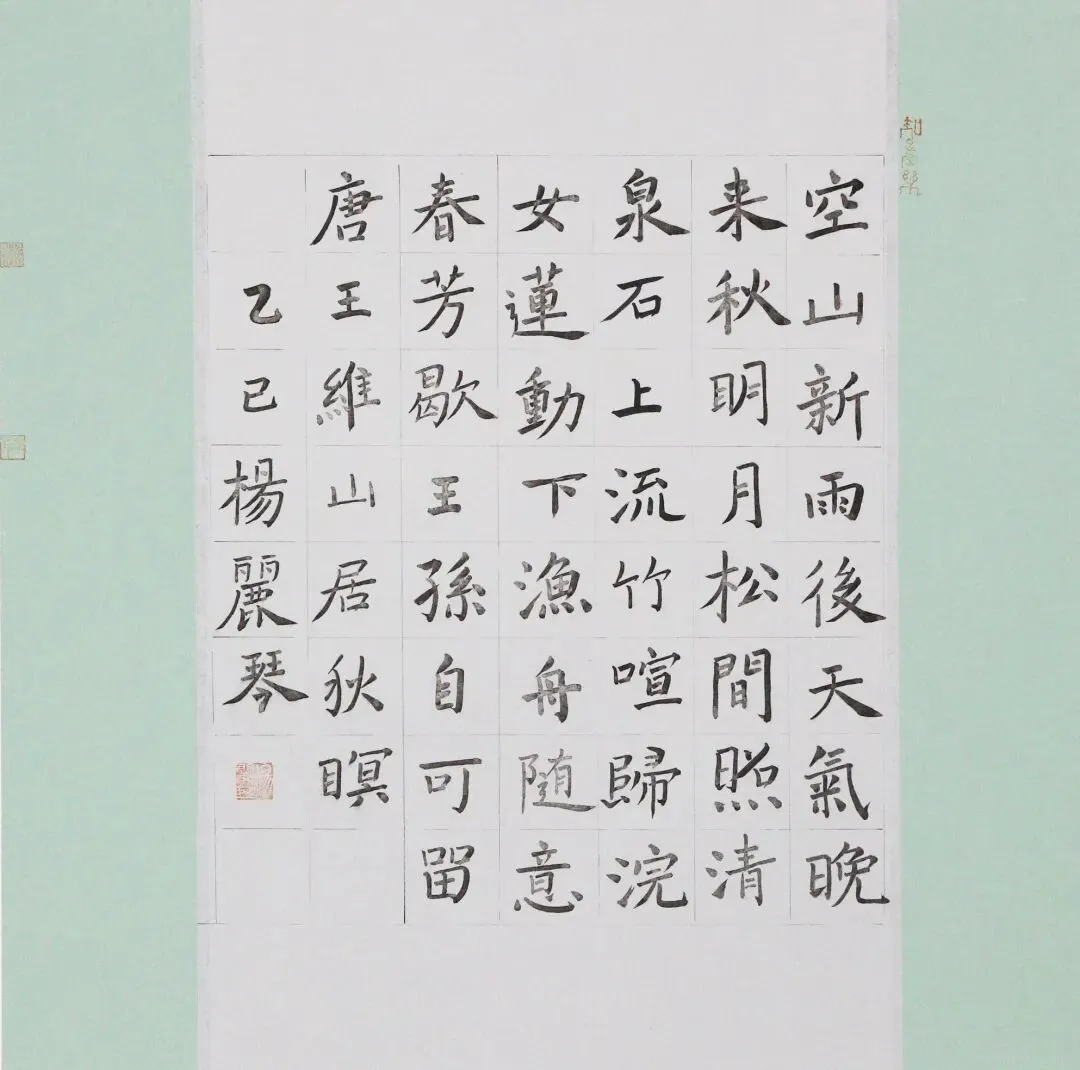 空山新雨後天氣晚
来秋明月松間照清
泉石上流竹喧歸浣
女蓮動下漁舟随意
春芳歇王孫自可留
唐王維山居狄暝
乙巳楊麗琴